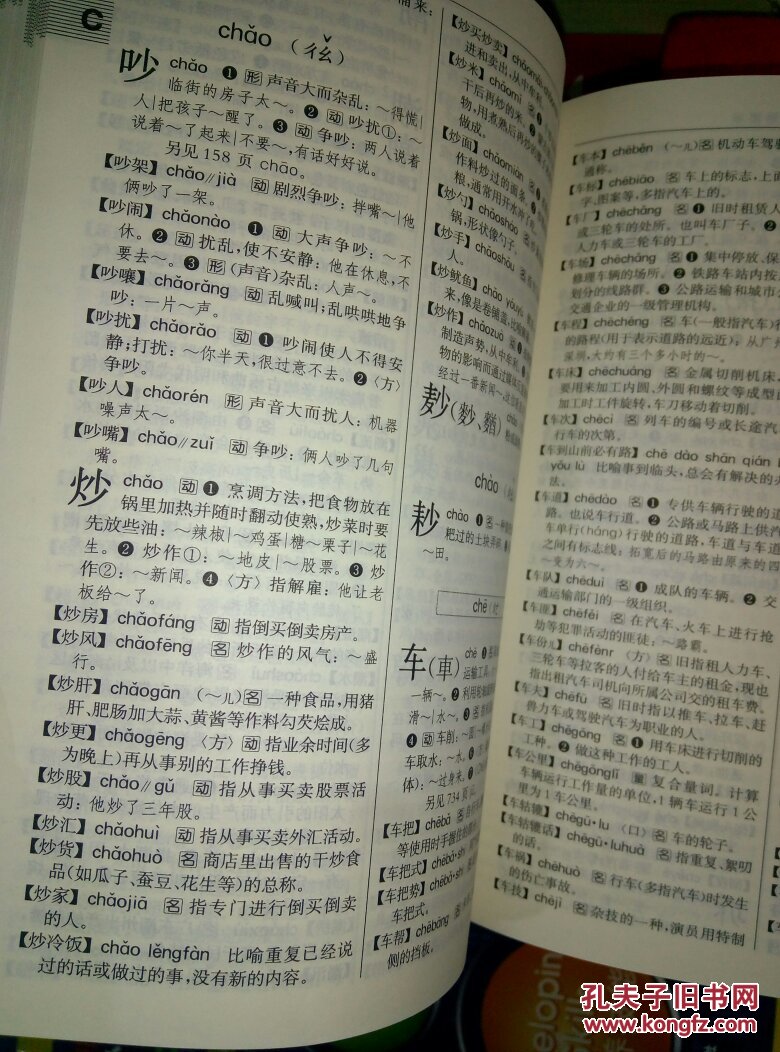 C
chǎo (ㄔㄠˇ)
吵 chǎo ❶ 形 声音大而杂乱：～得慌|
临街的房子太～。❷ 动 吵扰①：～
人|把孩子～醒了。❸ 动 争吵：两人说着
说着～了起来|不要～，有话好好说。
另见158页 chāo。
【吵架】chǎo∥jià 动 剧烈争吵：拌嘴～|他
俩吵了一架。
【吵闹】chǎonào ❶ 动 大声争吵：～不
休。❷ 动 扰乱，使不安静：他在休息，不
要去～。❸ 形 (声音)杂乱：人声～。
【吵嚷】chǎorǎng 动 乱喊叫；乱哄哄地争
吵：一片～声。
【吵扰】chǎorǎo 动 ❶ 吵闹使人不得安
静；打扰：～你半天，很过意不去。❷〈方〉
争吵。
【吵人】chǎorén 形 声音大而扰人：机器
噪声太～。
【吵嘴】chǎo∥zuǐ 动 争吵：俩人吵了几句
嘴。
炒 chǎo 动 ❶ 烹调方法，把食物放在
锅里加热并随时翻动使熟，炒菜时要
先放些油：～辣椒|～鸡蛋|糖～栗子|～花
生。❷ 炒作①：～地皮|～股票。❸ 炒
作②：～新闻。❹〈方〉指解雇：他让老
板给～了。
【炒房】chǎofáng 动 指倒买倒卖房产。
【炒风】chǎofēng 名 炒作的风气：～盛
行。
【炒肝】chǎogān (～儿)名 一种食品，用猪
肝、肥肠加大蒜、黄酱等作料勾芡烩成。
【炒更】chǎogēng〈方〉动 指业余时间(多
为晚上)再从事别的工作挣钱。
【炒股】chǎo∥gǔ 动 指从事买卖股票活
动：他炒了三年股。
【炒汇】chǎohuì 动 指从事买卖外汇活动。
【炒货】chǎohuò 名 商店里出售的干炒食
品(如瓜子、蚕豆、花生等)的总称。
【炒家】chǎojiā 名 指专门进行倒买倒卖
的人。
【炒冷饭】chǎo lěngfàn 比喻重复已经说
过的话或做过的事，没有新的内容。
【炒买炒卖】chǎomǎi
进和卖出，从中牟利
【炒米】chǎomǐ 名 ❶
干后再炒的米。❷
物，用煮熟后再炒的
做成。
【炒面】chǎomiàn 名
作料炒过的面条。
粮，通常用开水冲了
【炒勺】chǎosháo 名
锅，形状像勺子。
【炒手】chǎoshǒu 名
人。
【炒鱿鱼】chǎo yóuyú
来，像是卷铺盖，比喻
【炒作】chǎozuò 动
制造声势，从中牟利
物的影响而通过媒体
经过一番新闻～，
麨(麨、䴬)
chào
耖 chào ❶ 名
耙过的土块
～田。
chē
车(車) chē ❶
运输工具
一辆～。❷ 利用轮轴
滑～|水～。❸
❹ 动 车削：～
车取水：～水。
体)：～过身来。
另见734页
【车把】chēbǎ 名
等使用时手握住
【车把式】chēbǎ·shi
【车把势】chēbǎ·shi
车把式。
【车帮】chēbāng 名
侧的挡板。
【车本】chēběn (～儿)名 机动车驾驶
通称。
【车标】chēbiāo 名 车上的标志，上面
字、图案等，多指汽车上的。
【车厂】chēchǎng 名 ❶ 旧时租赁人
或三轮车的处所。也叫车厂子。❷
人力车或三轮车的工厂。
【车场】chēchǎng 名 ❶ 集中停放、保
修理车辆的场所。❷ 铁路车站内按
划分的线路群。❸ 公路运输和城市公
交通企业的一级管理机构。
【车程】chēchéng 名 车(一般指汽车)
的路程(用于表示道路的远近)：从广州
深圳，大约有三个多小时的～。
【车床】chēchuáng 名 金属切削机床，
要用来加工内圆、外圆和螺纹等成型
加工时工件旋转，车刀移动着切削。
【车次】chēcì 名 列车的编号或长途汽
行车的次第。
【车到山前必有路】chē dào shān qián
yǒu lù 比喻事到临头，总会有解决的办
法。
【车道】chēdào 名 ❶ 专供车辆行驶的道
路。也说车行道。❷ 公路或马路上供汽
车单行(háng)行驶的道路，车道与车道
之间有标志线：拓宽后的马路由原来的四
～变为六～。
【车队】chēduì 名 ❶ 成队的车辆。❷ 交
通运输部门的一级组织。
【车匪】chēfěi 名 在汽车、火车上进行抢
劫等犯罪活动的匪徒：～路霸。
【车份儿】chēfènr〈方〉名 旧指租人力车、
三轮车等拉客的人付给车主的租金，现也
指出租汽车司机向所属公司交的租车费。
【车夫】chēfū 名 旧时指以推车、拉车、赶
兽力车或驾驶汽车为职业的人。
【车工】chēgōng 名 ❶ 用车床进行切削的
工种。❷ 做这种工作的工人。
【车公里】chēgōnglǐ 量 复合量词。计算
车辆运行工作量的单位，1辆车运行1公
里为1车公里。
【车轱辘】chēgū·lu〈口〉名 车的轮子。
【车轱辘话】chēgū·luhuà 名 指重复、絮叨
的话。
【车祸】chēhuò 名 行车(多指汽车)时发生
的伤亡事故。
【车技】chējì 名 杂技的一种，演员用特制
eloping
孔夫子旧书网
kongfz.com